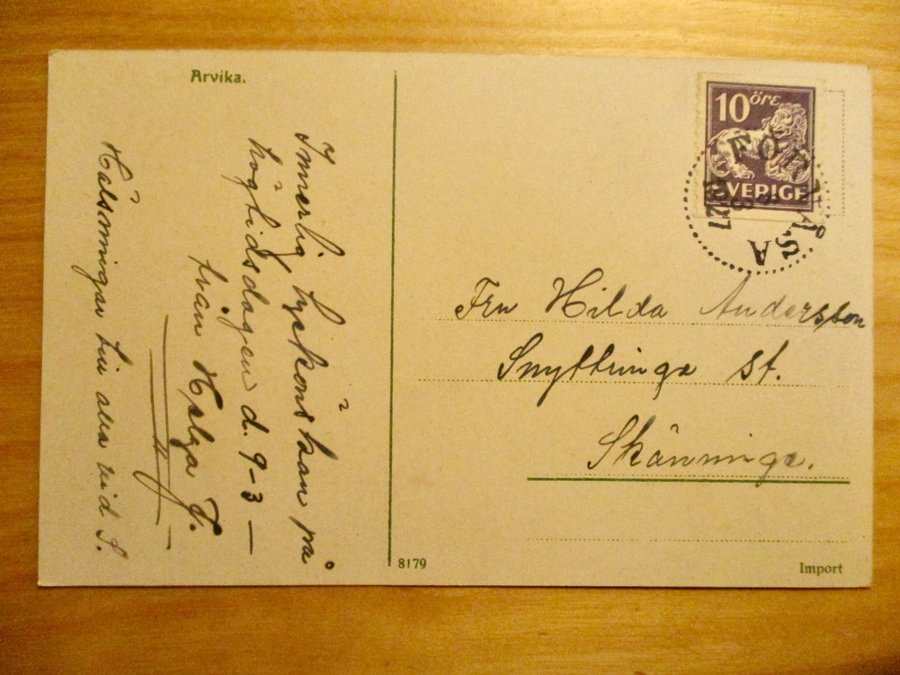 Arvika.
Innerlig lyckönskan på
högtidsdagen d. 9-3 —
från Helga F.
Hälsningar till alla vid S.
10 öre
SVERIGE
FORNÅSA
27
Fru Hilda Andersson
Smyttinge st.
Skänninge.
8179
Import